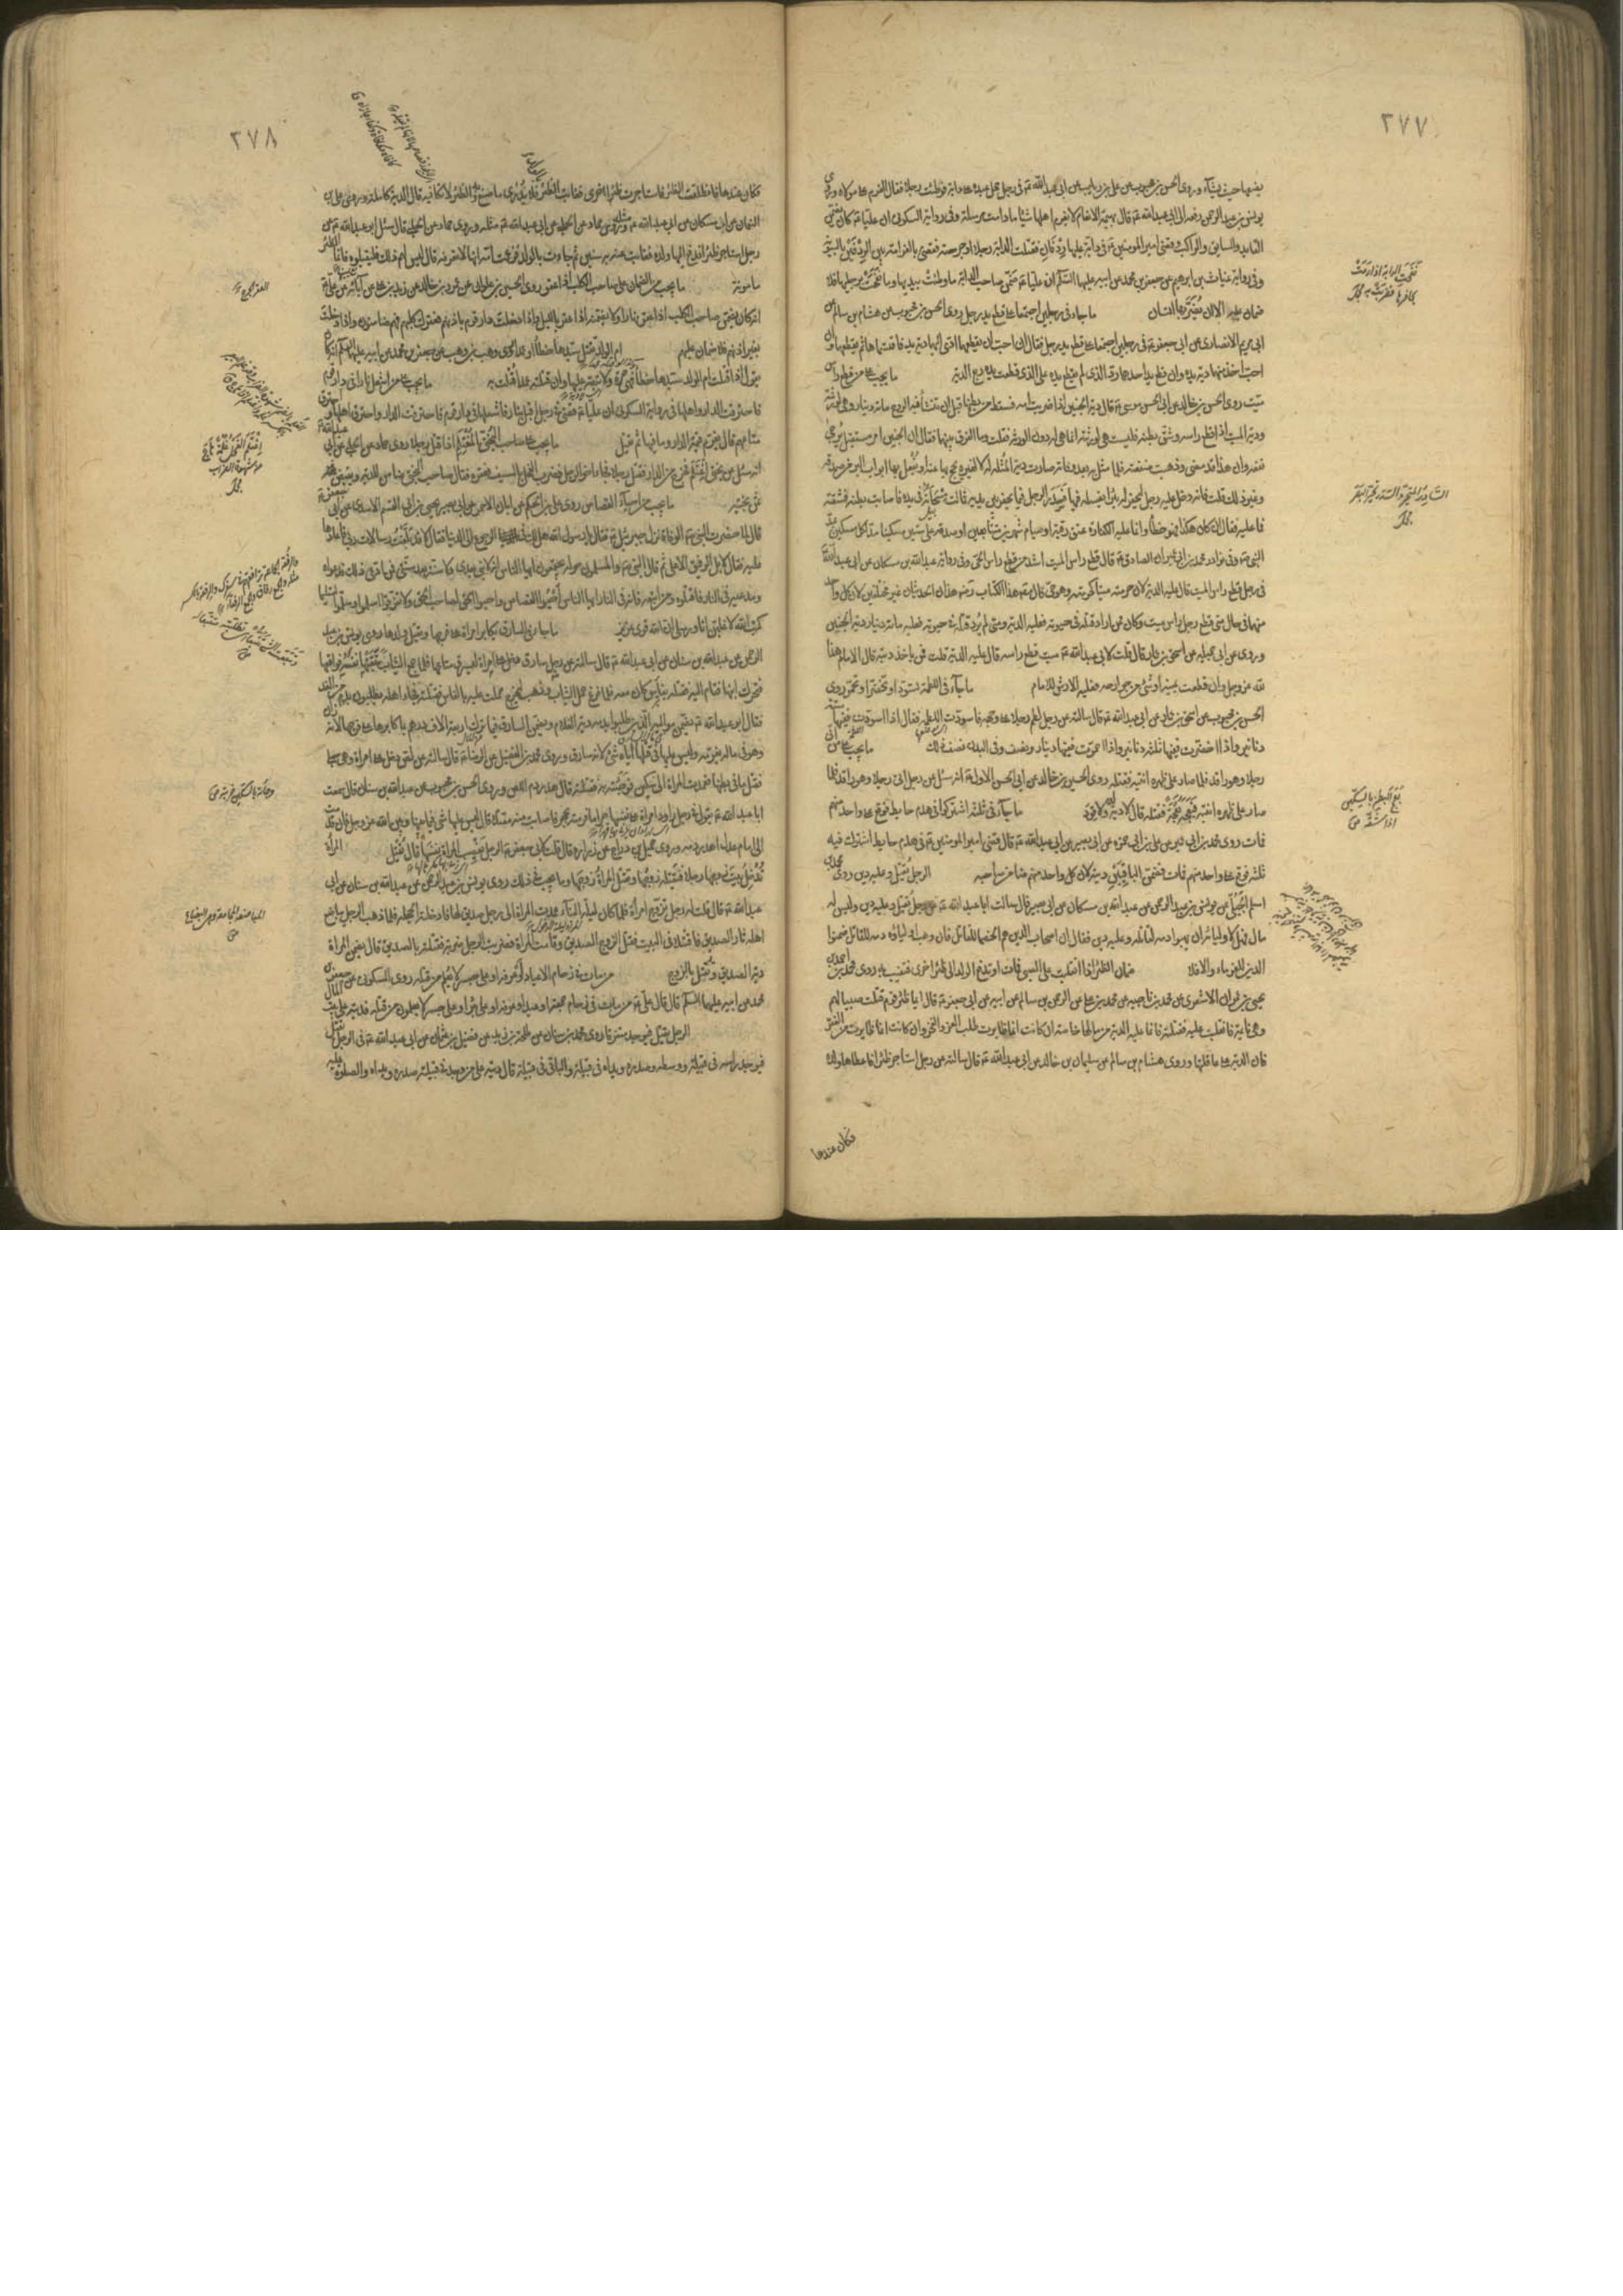 ٢٧٧
يضمنها حيث يشاء وروى الحسن بن محبوب عن علي بن رئاب عن ابي عبدالله ع في رجل حمل عبده على دابة فوطئت رجلا فقال الغرم على مولاه وروى
يونس بن عبدالرحمن رفعه الى ابي عبدالله ع قال بهيمة الانعام لا يغرم اهلها شيئا ما دامت مرسلة وفي رواية السكوني ان عليا ع كان يضمن
القايد والسايق والراكب فقضى اميرالمومنين ع في دابة عليها ردفان فقتلت الدابة رجلا او جرحته فقضى بالغرامة بين الردفين بالسوية
وفي رواية غياث بن ابرهيم عن جعفر بن محمد عن ابيه عليهما السلام ان عليا ع ضمن صاحب الدابة ما وطئت بيديها وما نفحت برجليها فلا
ضمان عليه الا ان يضربها انسان ما جاء في رجلين اجتمعا على قطع يد رجل روى الحسن بن محبوب عن هشام بن سالم عن
ابي مريم الانصاري عن ابي جعفر ع في رجلين اجتمعا على قطع يد رجل فقال ان احب ان يقطعهما ادى اليهما دية يد فاقتسماها ثم يقطعهما وان
احب اخذ منهما دية يد وان قطع يد احدهما رد الذي لم يقطع يده على الذي قطعت يده ربع الدية ما يجب على من قطع راس
ميت روى الحسين بن خالد عن ابي الحسن موسى ع قال دية الجنين اذا ضربت امه فسقط من بطنها قبل ان تنشأ فيه الروح مائة دينار وهي لورثته
ودية الميت اذا قطع راسه وشق بطنه فليست هي لورثته انما هي له دون الورثة فقلت وما الفرق بينهما فقال ان الجنين امر مستقبل يرجى
نفعه وان هذا قد مضى وذهبت منفعته فلما مثل به بعد وفاته صارت دية المثلة له لا لغيره يحج بها عنه او يفعل بها ابواب البر من صدقة
وغير ذلك قلت فانه دخل عليه رجل ليحفر له بئرا يغسله فيها فسدر الرجل فيما يحفر بين يديه فمالت مسحاته في يده فاصابت بطنه فشقته
فما عليه فقال ان كان هكذا فهو خطأ وانما عليه الكفارة عتق رقبة او صيام شهرين متتابعين او صدقة على ستين مسكينا مد لكل مسكين بمد
النبي ص وفي نوادر محمد بن ابي عمير ان الصادق ع قال قطع راس الميت اشد من قطع راس الحي وفي رواية عبدالله بن مسكان عن ابي عبدالله
في رجل قطع راس الميت قال عليه الدية لان حرمته ميتا كحرمته وهو حي قال مصنف هذا الكتاب رضه هذان الحديثان غير مختلفين لان كل واحد
منهما في حال متى قطع رجل راس ميت وكان ممن اراد قتله في حيوته فعليه الدية ومتى لم يرد قتله في حيوته فعليه مائة دينار دية الجنين
وروى عن ابي جميلة عن اسحق بن عمار قال قلت لابي عبدالله ع ميت قطع راسه قال عليه الدية قلت فمن ياخذ ديته قال الامام هذا
لله عز وجل وان قطعت يمينه او شئ من جوارحه فعليه الارش للامام ما جاء في اللطمة تسود او تخضر او تحمر روى
الحسن بن محبوب عن اسحق بن عمار عن ابي عبدالله ع قال سالته عن رجل لطم رجلا على وجهه فاسودت اللطمة فقال اذا اسودت ففيها ستة
دنانير واذا اخضرت ففيها ثلثة دنانير واذا احمرت ففيها دينار ونصف وفي البدن نصف ذلك ما يجب على من اتى
رجلا وهو راقد فلما صار على ظهره انتبه فقتله روى الحسين بن خالد عن ابي الحسن الاول ع انه سئل عن رجل اتى رجلا وهو راقد فلما
صار على ظهره انتبه فبعجه بعجة فقتله قال لا دية له ولا قود ما جاء في ثلثة اشتركوا في هدم حايط فوقع على واحد منهم
فمات روى محمد بن ابي عمير عن علي بن ابي حمزة عن ابي بصير عن ابي عبدالله ع قال قضى اميرالمومنين ع في هدم حايط اشترك فيه
ثلثة فوقع على واحد منهم فمات فضمن الباقين ديته لان كل واحد منهم ضامن صاحبه الرجل يقتل وعليه دين روى محمد بن
اسلم الجبلي عن يونس بن عبدالرحمن عن عبدالله بن مسكان عن ابي بصير قال سالت ابا عبدالله ع عن رجل قتل وعليه دين وليس له
مال فهل لاوليائه ان يهبوا دمه لقاتله وعليه دين فقال ان اصحاب الدين هم الخصماء للقاتل فان وهب اولياؤه دمه للقاتل ضمنوا
الدين للغرماء والا فلا ضمان الظئر اذا انقلبت على الصبي فمات او تدفع الولد الى ظئر اخرى فتغيب به روى محمد بن احمد بن
يحيى بن عمران الاشعري عن محمد بن ناصيه عن محمد بن علي عن عبدالرحمن بن سالم عن ابيه عن ابي جعفر ع قال ايما ظئر قوم قتلت صبيا لهم
وهي نايمة فانقلبت عليه فقتلته فانما عليها الدية من مالها خاصة ان كانت انما ظايرت طلب العز والفخر وان كانت انما ظايرت من الفقر
فان الدية على عاقلتها وروى هشام بن سالم عن سليمان بن خالد عن ابي عبدالله ع قال سالته عن رجل استاجر ظئرا فاعطاها ولده
فكان عندها
نفحت الدابة اذا رمت
بحافرها فضربت به مجمل
السادر المتحير والسدر تحير البصر
مجمل
بعج البطن بالسكين
اذا شقه ص
٢٧٨
فكان عندها فانطلقت الظئر فاستاجرت ظئرا اخرى فغابت الظئر بالولد فلا يدرى ما صنع به والظئر لا تكافيه قال الدية كاملة وروى علي بن
النعمان عن ابن مسكان عن ابي عبدالله ع مثله وروى حماد عن الحلبي عن ابي عبدالله ع مثله وروى حماد عن الحلبي قال سئل ابو عبدالله ع عن
رجل استاجر ظئرا فدفع اليها ولده فغابت عنه به سنين ثم جاءت بالولد فزعمت امه انها لا تعرفه قال ليس لهم ذلك فليقبلوه فانما الظئر
مامونة ما يجب من الضمان على صاحب الكلب اذا عقر روى الحسين بن علوان عن عمرو بن خالد عن زيد بن علي عن آبائه عن علي ع
انه كان يضمن صاحب الكلب اذا عقر نهارا ولا يضمنه اذا عقر بالليل واذا دخلت دار قوم باذنهم فعقرك كلبهم فهم ضامنون واذا دخلت
بغير اذنهم فلا ضمان عليهم ام الولد تقتل سيدها خطأ او عمدا روى وهب بن وهب عن جعفر بن محمد عن ابيه عليهما السلام انه كان
يقول اذا قتلت ام الولد سيدها خطأ فهي حرة ولا تبعة عليها وان قتلته عمدا قتلت به ما يجب على من اشعل نارا في دار قوم
فاحترقت الدار واهلها في رواية السكوني ان عليا ع قضى في رجل اقبل بنار فاشعلها في دار قوم فاحترقت الدار واحترق اهلها واحترق
متاعهم قال يغرم قيمة الدار وما فيها ثم يقتل ما يجب على صاحب البختي المغتلم اذا قتل رجلا روى حماد عن الحلبي عن ابي عبدالله ع
انه سئل عن بختي اغتلم فخرج من الدار فقتل رجلا فجاء اخو الرجل فضرب الفحل بالسيف فعقره فقال صاحب البختي ضامن للدية ويقبض
ثمن بختيه ما يجب من احياء القصاص روى علي بن الحكم عن ابان الاحمر عن ابي بصير يحيى بن ابي القسم الاسدي عن ابي جعفر ع
قال لما حضرت النبي ص الوفاة نزل جبرئيل ع فقال يا رسول الله هل لك في الرجوع الى الدنيا فقال لا قد بلغت رسالات ربي فاعادها
عليه فقال لا بل الرفيق الاعلى ثم قال النبي ص والمسلمون حوله مجتمعون ايها الناس انه لا نبي بعدي ولا سنة بعد سنتي فمن ادعى ذلك فدعواه
وبدعته في النار فاقتلوه ومن اتبعه فانه في النار ايها الناس احيوا القصاص واحيوا الحق لصاحب الحق ولا تفرقوا اسلموا وسلموا تسلموا
كتب الله لاغلبن انا ورسلي ان الله قوي عزيز ما جاء في السارق يكابر امراة على فرجها ويقتل ولدها روى يونس بن عبد
الرحمن عن عبدالله بن سنان عن ابي عبدالله ع قال سالته عن رجل سارق دخل على امراة ليسرق متاعها فلما جمع الثياب تبعتها نفسه فواقعها
فتحرك ابنها فقام اليه فقتله بفاس كان معه فلما فرغ حمل الثياب وذهب ليخرج حملت عليه بالفاس فقتلته فجاء اهله يطلبون بدمه من الغد
فقال ابو عبدالله ع يضمن مواليه الذين طلبوا بدمه دية الغلام ويضمن السارق فيما ترك اربعة الاف درهم بما كابرها على فرجها لانه زان
وهو في ماله يغرمه وليس عليها في قتلها اياه شئ لانه سارق وروى محمد بن الفضيل عن الرضا ع قال سالته عن لص دخل على امراة وهي حبلى
فقتل ما في بطنها فعمدت المراة الى سكين فوجئته به فقتلته قال هدر دم اللص وروى الحسن بن محبوب عن عبدالله بن سنان قال سمعت
ابا عبدالله ع يقول في رجل راود امراة على نفسها حراما فرمته بحجر فاصابت منه مقتلا قال ليس عليها شئ فيما بينها وبين الله عز وجل فان قدمت
الى امام عدل اهدر دمه وروى جميل بن دراج عن زرارة قال قلت لابي جعفر ع الرجل يغصب المراة نفسها قال يقتل المراة
تدخل بيت زوجها رجلا فيقتله زوجها وتقتل المراة زوجها وما يجب في ذلك روى يونس بن عبدالرحمن عن عبدالله بن سنان عن ابي
عبدالله ع قال قلت له رجل تزوج امراة فلما كان ليلة البناء عمدت المراة الى رجل صديق لها فادخلته الحجلة فلما ذهب الرجل يباضع
اهله ثار الصديق فاقتتلا في البيت فقتل الزوج الصديق وقامت المراة فضربت الرجل ضربة فقتلته بالصديق قال تضمن المراة
دية الصديق وتقتل بالزوج من مات في زحام الاعياد او عرفة او على جسر لا يعلم من قتله روى السكوني عن جعفر بن
محمد عن ابيه عليهما السلام قال قال علي ع من مات في زحام جمعة او عيد او عرفة او على بئر او على جسر لا يعلمون من قتله فديته على بيت المال
الرجل يقتل فيوجد متفرقا روى محمد بن سنان عن طلحة بن زيد عن فضيل بن عثمان عن ابي عبدالله ع في الرجل يقتل
فيوجد راسه في قبيلة ووسطه وصدره ويداه في قبيلة والباقي في قبيلة قال ديته على من وجد في قبيلته صدره ويداه والصلوة عليه
العقر الجرح
اغتلم الفحل غلمة هاج
من شهوة الضراب
مجمل
وجاته بالسكين ضربته ص
المباضعة المجامعة وهي البضاع
ص